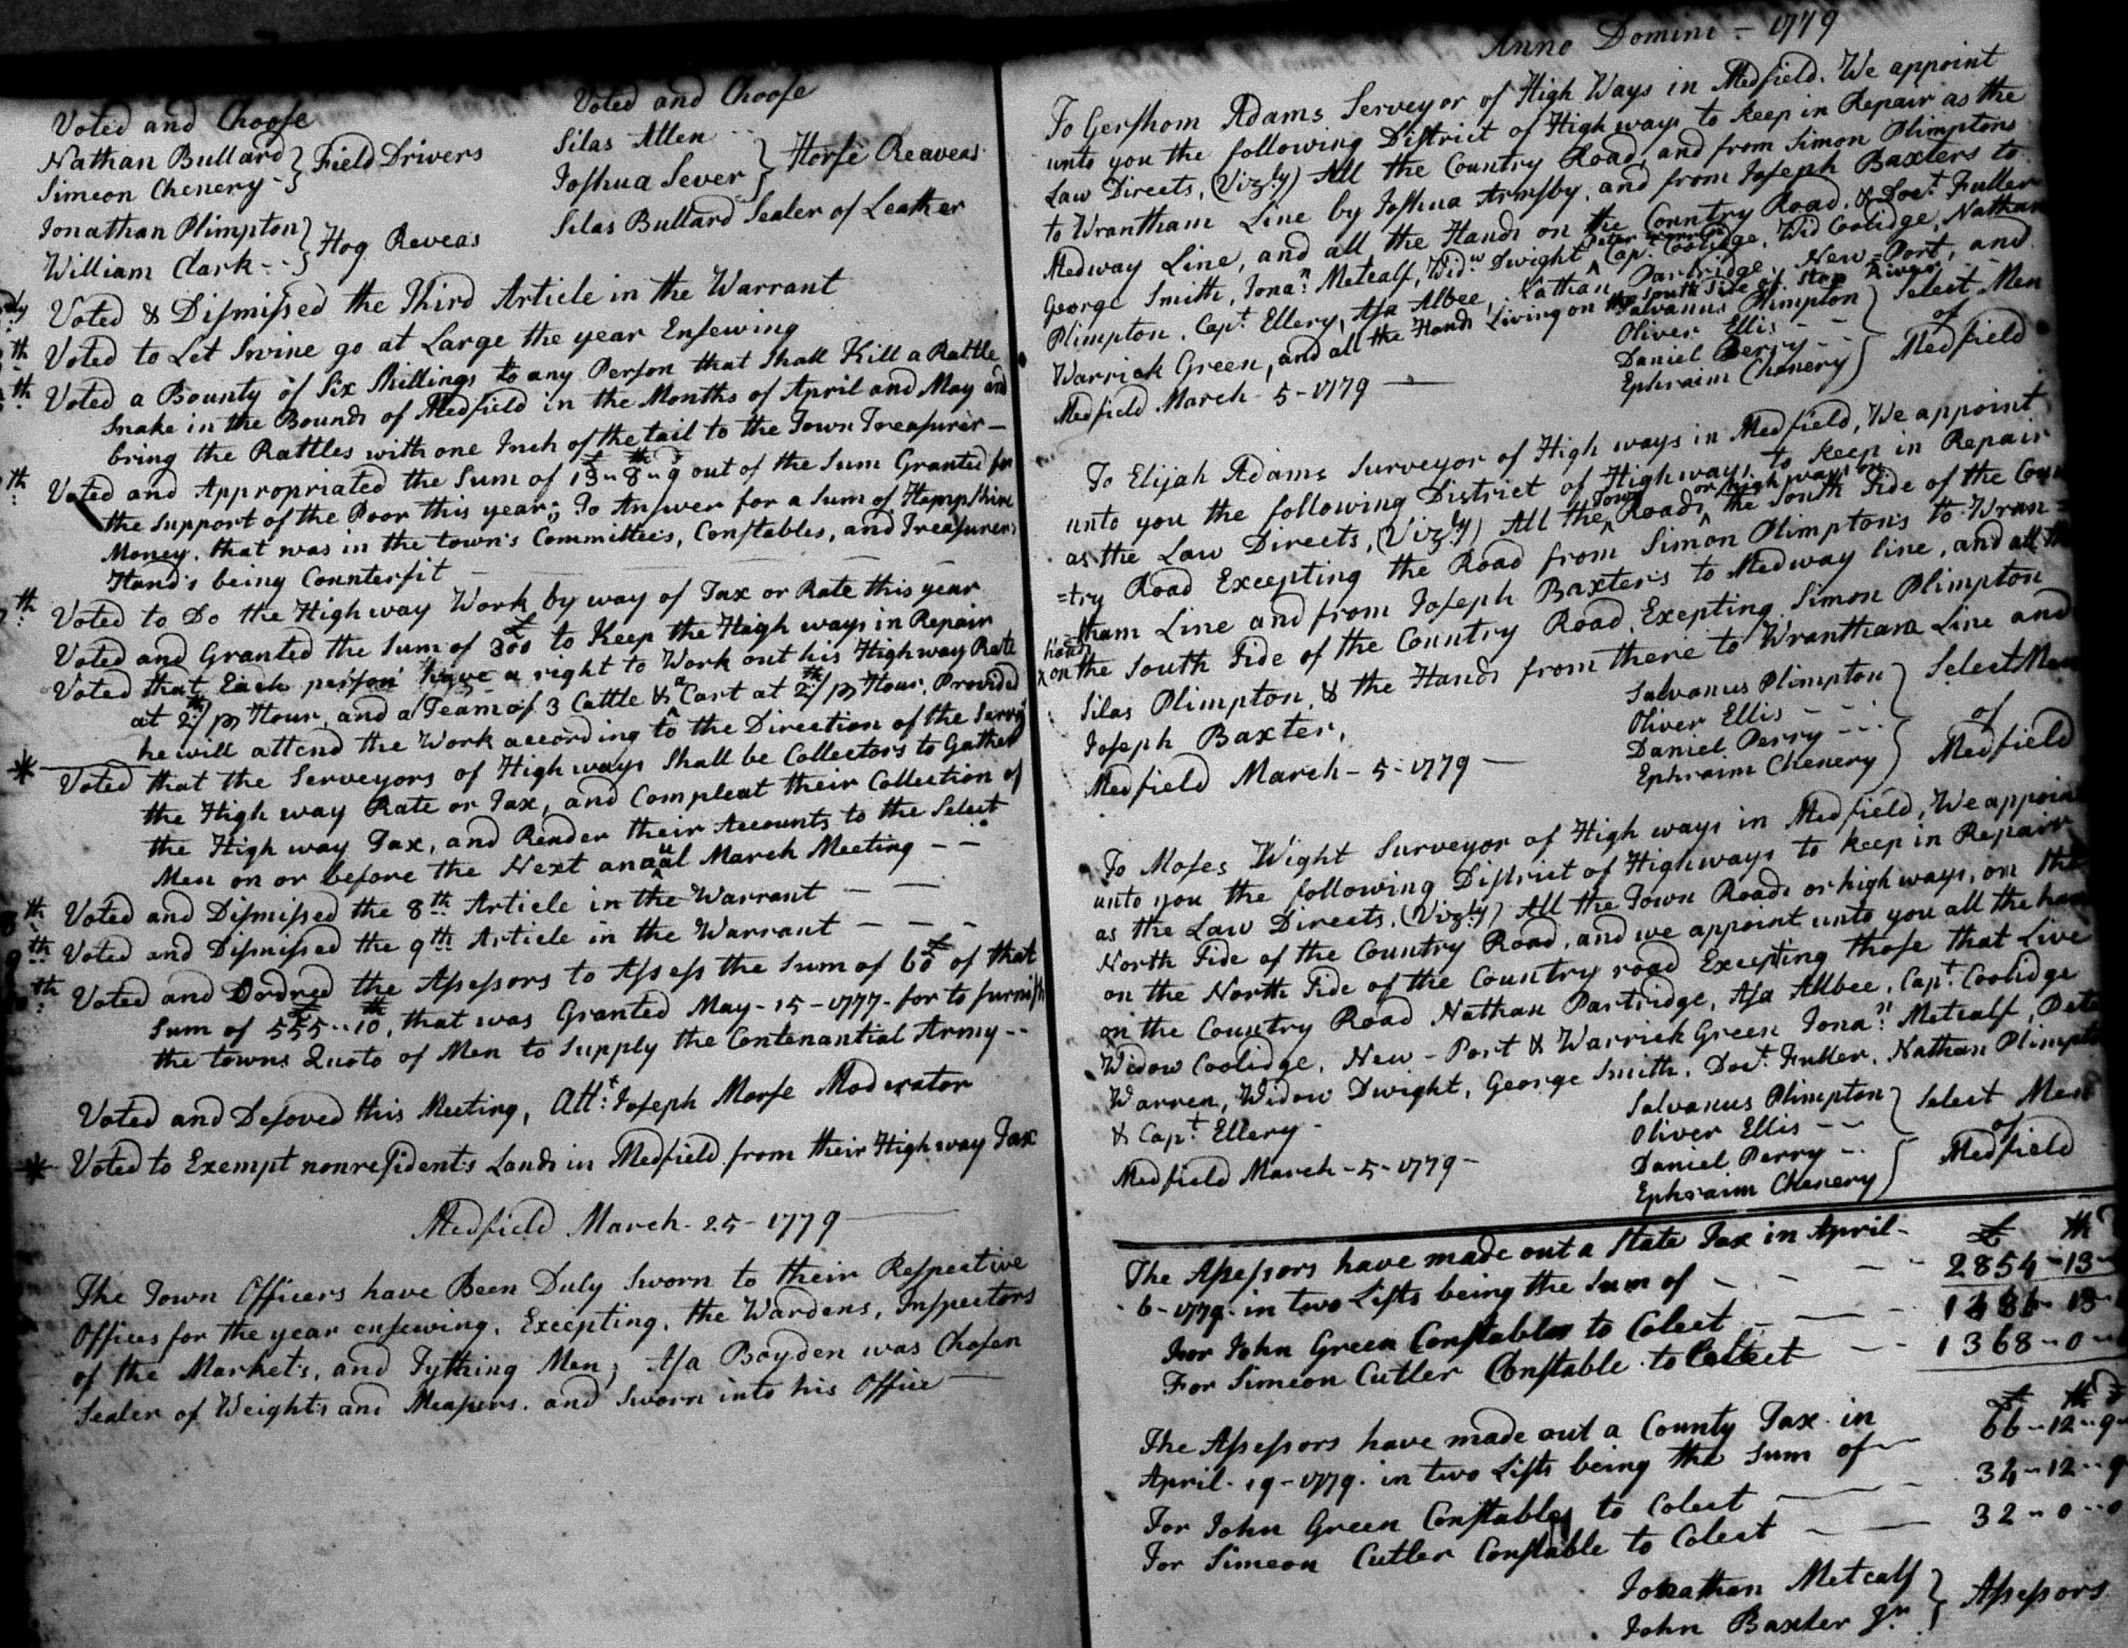 Voted and Choose
Nathan Bullard } Field Drivers
Simeon Chenery }
Jonathan Plimpton } Hog Reveas
William Clark }
Voted and Choose
Silas Allen } Horse Reaveas
Joshua Sever }
Silas Bullard Sealer of Leather
Voted & Dismissed the Third Article in the Warrant
th Voted to Let Swine go at Large the year Ensewing
th Voted a Bounty of Six Shillings to any Person that Shall Kill a Rattle
Snake in the Bounds of Medfield in the Months of April and May and
bring the Rattles with one Inch of the tail to the Town Treasurer –
th Voted and Appropriated the Sum of 13 – 8 – 9 out of the Sum Granted for
the Support of the Poor this year; To Answer for a Sum of Hampshire
Money, that was in the town's Committee's, Constables, and Treasurers
Hand's being Counterfit
th Voted to Do the High way Work by way of Tax or Rate this year
Voted and Granted the Sum of 300£ to Keep the High ways in Repair
Voted that Each person have a right to Work out his High way Rate
at 2/ p Hour, and a Team of 3 Cattle & a Cart at 2/ p Hour, Provided
he will attend the Work according to the Direction of the
* Voted that the Serveyors of High ways Shall be Collectors to Gather
the High way Rate or Tax, and Compleat their Collection of
the High way Tax, and Reader their Accounts to the Select
Men on or before the Next anaual March Meeting – –
8th Voted and Dismissed the 8th Article in the Warrant – –
9th Voted and Dismissed the 9th Article in the Warrant – – –
th Voted and Dordred the Assessors to Assess the Sum of 60£ of that
Sum of 555 – 10, that was Granted May – 15 – 1777 – for to furnish
the towns Quoto of Men to Supply the Contenantial Army – –
Voted and Desoved this Meeting, Attt: Joseph Morse Moderator
* Voted to Exempt nonresident's Lands in Medfield from their High way Tax
Medfield March – 25 – 1779
The Town Officers have Been Duly Sworn to their Respective
Offices for the year ensewing. Excepting, the Wardens, Inspectors
of the Markets, and Tything Men; Asa Boyden was Chosen
Sealer of Weights and Measures. and Sworn into his Office
Anno Domini – 1779
To Gershom Adams Serveyor of High Ways in Medfield. We appoint
unto you the following District of High ways to keep in Repair as the
Law Directs, (Vizly) All the Country Road, and from Simon Plimptons
to Wrantham Line by Joshua Armsby, and from Joseph Baxters to
Medway Line, and all the Hands on the Country Road, & Doct. Fuller
George Smith, Jonan. Metcalf, Widw. Dwight, Peter Warren Capt. Coolidge, Wid Coolidge, Nathan
Plimpton, Capt. Ellery, Asa Albee, Nathan Partridge, New=Port, and
Warrick Green, and all the Hands Living on the South Side of Stop River
Medfield March – 5 – 1779
Salvanus Plimpton } Select Men
Oliver Ellis } of
Daniel Perry } Medfield
Ephraim Chenery }
To Elijah Adams Surveyor of High ways in Medfield, We appoint
unto you the following District of High ways to keep in Repair
as the Law Directs, (Vizly) All the Town Roads or high ways on the South Side of the Coun
=try Road Excepting the Road from Simon Plimptons to Wran=
tham Line and from Joseph Baxters to Medway line, and all the
hands on the South Side of the Country Road, Exepting Simon Plimpton
Silas Plimpton, & the Hands from there to Wrantham Line and
Joseph Baxter,
Medfield March – 5 – 1779 –
Salvanus Plimpton } Select Men
Oliver Ellis } of
Daniel Perry } Medfield
Ephraim Chenery }
To Moses Wight Surveyor of High ways in Medfield, We appoint
unto you the following District of High ways to keep in Repair
as the Law Directs, (Vizly) All the Town Roads or high ways, on the
North Side of the Country Road, and we appoint unto you all the hands
on the North Side of the Country road Excepting those that Live
on the Country Road Nathan Partridge, Asa Allbee, Capt. Coolidge
Widow Coolidge, New – Port & Warrick Green Jonan. Metcalf, Peter
Warren, Widow Dwight, George Smith, Doct. Fuller, Nathan Plimpton
& Capt. Ellery –
Medfield March – 5 – 1779 –
Salvanus Plimpton } Select Men
Oliver Ellis } of
Daniel Perry } Medfield
Ephraim Chenery }
The Assessors have made out a State Tax in April –
6 – 1779 – in two Lists being the Sum of – – – 2854 – 13 –
For John Green Constable to Colect – – 1486 – 13 –
For Simeon Cutler Constable to Colect – – 1368 – 0 –
The Assessors have made out a County Tax in
April – 19 – 1779 – in two Lists being the Sum of – 66 – 12 – 9
For John Green Constable to Colect – 34 – 12 – 9
For Simeon Cutler Constable to Colect – 32 – 0 – 0
Jonathan Metcalf } Assessors
John Baxter Jr. }